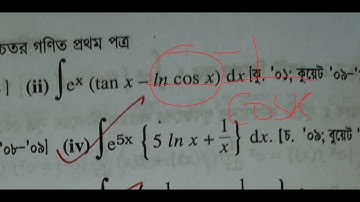 চতর গণিত প্রথম পত্র
] (ii) ∫eˣ (tan x – ln cos x) dx [কু. '০১; কুয়েট '০৯-'
cosx
'০৮-'০৯] (iv) ∫e⁵ˣ { 5 ln x + 1/x } dx. [চ. '০৯; বুয়েট '